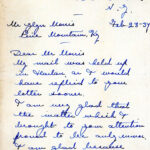 N. Y.
Mr. Glyn Morris Feb-23-39
Pine Mountain, Ky
Dear Mr Morris
My mail was held up
in Harlan as I would
have replied to your
letter sooner.
I am very glad that
the matter which I
brought to your attention
proved to be only rumor.
I am glad because